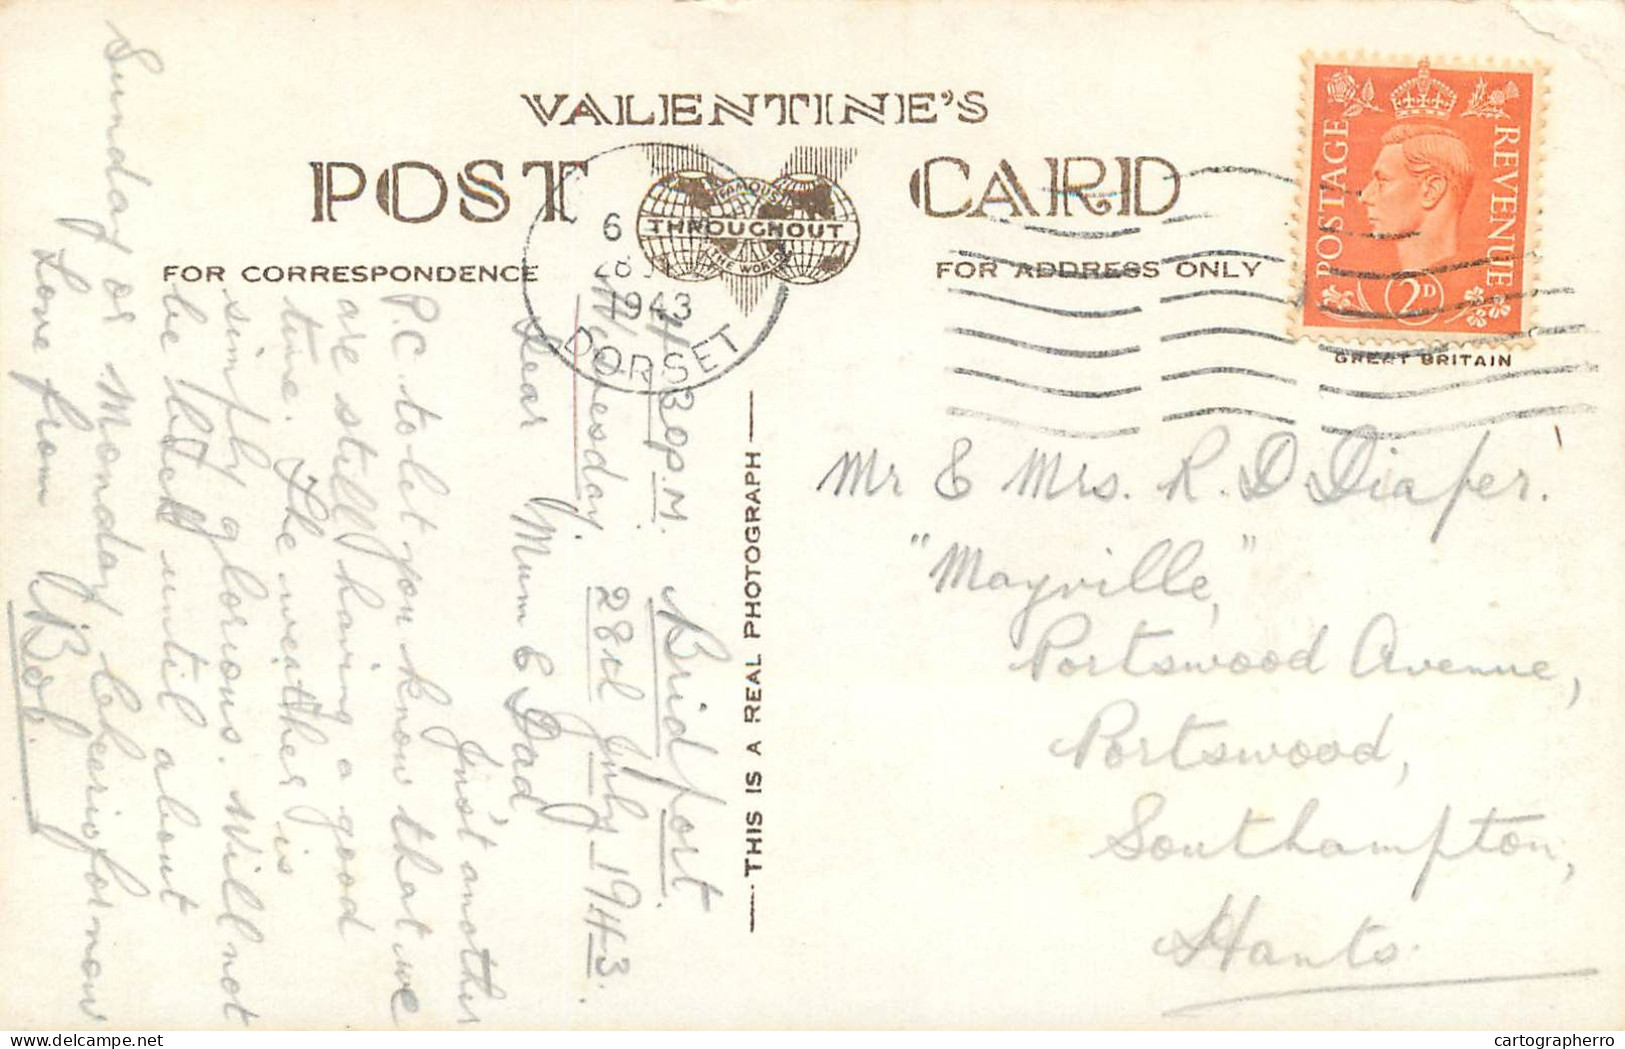 VALENTINE'S
POST CARD
FAMOUS
THROUGHOUT
THE WORLD
FOR CORRESPONDENCE
FOR ADDRESS ONLY
6
28
1943
DORSET
POSTAGE
REVENUE
2D
GREAT BRITAIN
THIS IS A REAL PHOTOGRAPH
4.30 P.M. Bridport
Wednesday 28rd July 1943.
Dear Mum & Dad
Just another
P.C. to let you know that we
are still having a good
time. The weather is
simply glorious. Will not
be back until about
Sunday or Monday Cheerio for now
Love from Bob.
Mr & Mrs. R. D Diaper.
"Mayville,"
Portswood Avenue,
Portswood,
Southampton,
Hants.
delcampe.net
cartographerro